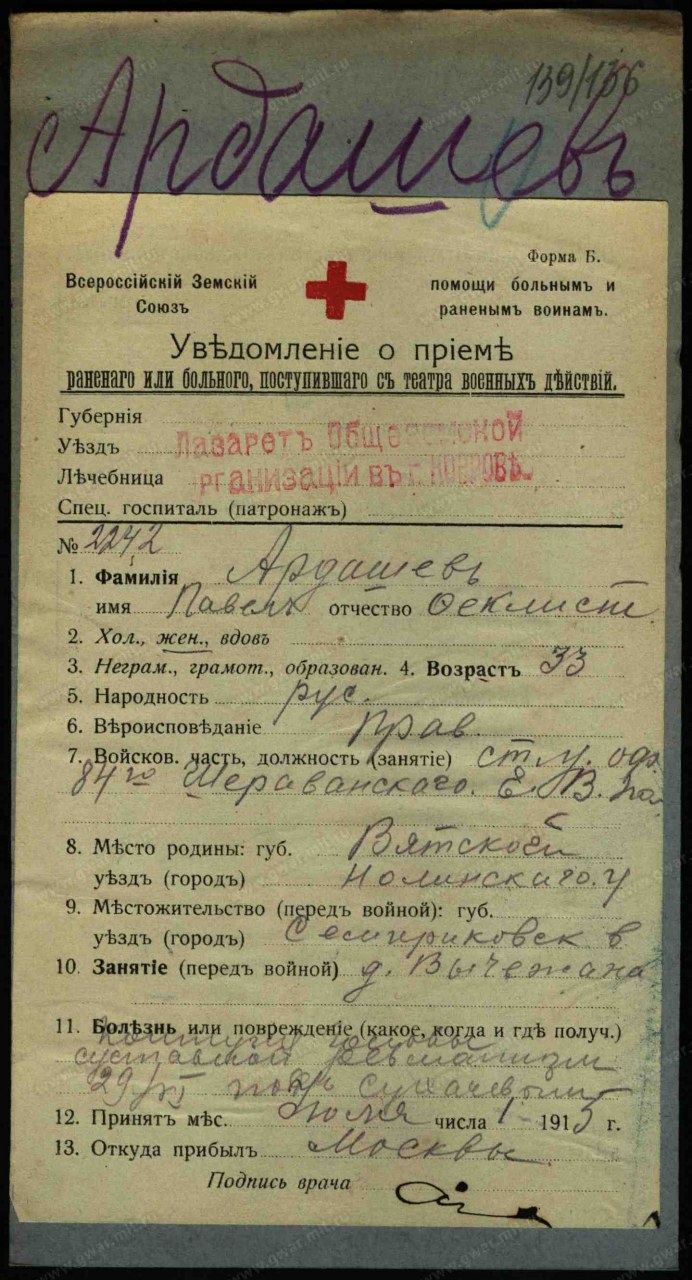 139/136
Ардашевъ
Форма Б.
Всероссійскій Земскій
Союзъ
помощи больнымъ и
раненымъ воинамъ.
Увѣдомленіе о пріемѣ
раненаго или больного, поступившаго съ театра военныхъ дѣйствій.
Губернія
Уѣздъ
Лазаретъ
Лѣчебница
рганизаціи въ г. КОВРОВѢ.
Спец. госпиталь (патронажъ)
№ 2242
1. Фамилія Ардашевъ
имя Павелъ отчество Феклист.
2. Хол., жен., вдовъ
3. Неграм., грамот., образован. 4. Возрастъ 33
5. Народность рус.
6. Вѣроисповѣданіе прав.
7. Войсков. часть, должность (занятіе)
84го Е. В.
8. Мѣсто родины: губ. Вятской
уѣздъ (городъ) Нолинскаго у
9. Мѣстожительство (передъ войной): губ.
уѣздъ (городъ) в
10. Занятіе (передъ войной) д.
11. Болѣзнь или поврежденіе (какое, когда и гдѣ получ.)
головы
суставной ревматизм
29
12. Принятъ мѣс. Июля числа 1 1915 г.
13. Откуда прибылъ Москвы
Подпись врача
www.gwar.mil.ru